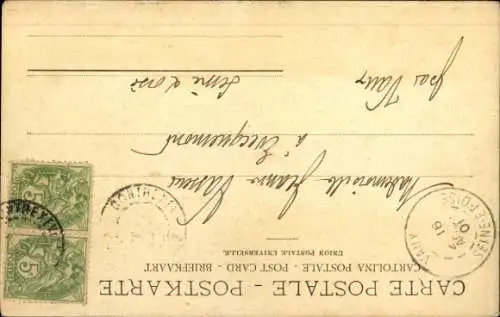 CARTE POSTALE - POSTKARTE
CARTOLINA POSTALE - POST CARD - BRIEFKAART
UNION POSTALE UNIVERSELLE.
Mademoiselle Jeanne
à Evecquemont
par Vaux
Seine & Oise
VAUX
SEINE-ET-OISE
16
01
5
5